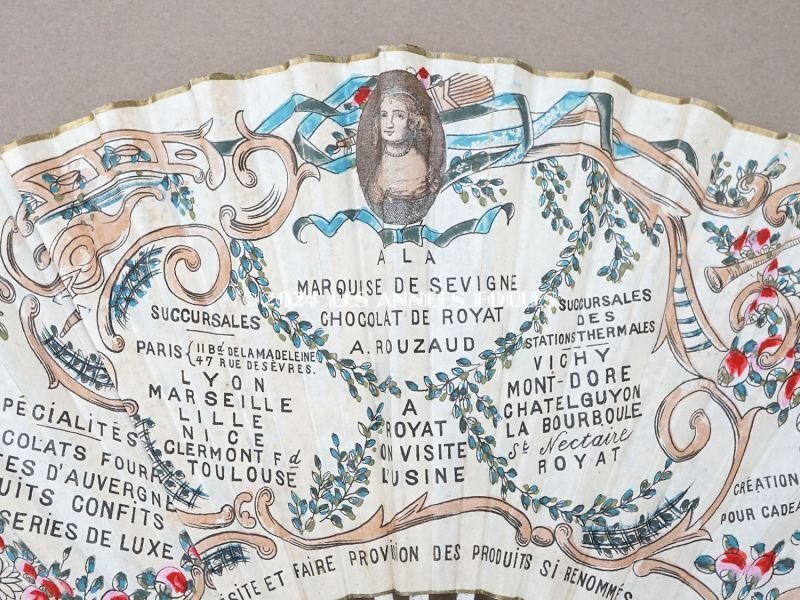 A LA
MARQUISE DE SEVIGNE
© 2024 LES ANNÉES FOLLES
CHOCOLAT DE ROYAT
A. ROUZAUD
SUCCURSALES
PARIS { 11 Bd DE LA MADELEINE
47 RUE DE SÈVRES.
LYON
MARSEILLE
LILLE
NICE
CLERMONT Fd
TOULOUSE
A
ROYAT
ON VISITE
L'USINE
SUCCURSALES
DES
STATIONS THERMALES
VICHY
MONT-DORE
CHATELGUYON
LA BOURBOULE
St Nectaire
ROYAT
PÉCIALITÉS
COLATS FOURR
TES D'AUVERGNE
UITS CONFITS
SERIES DE LUXE
CRÉATION
POUR CADEA
SITE ET FAIRE PROVISION DES PRODUITS SI RENOMMÉS